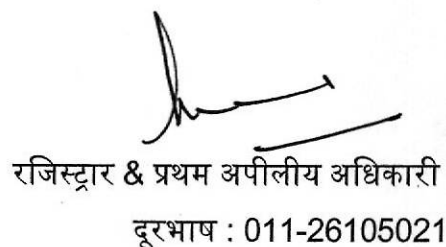 रजिस्ट्रार & प्रथम अपीलीय अधिकारी
दूरभाष : 011-26105021